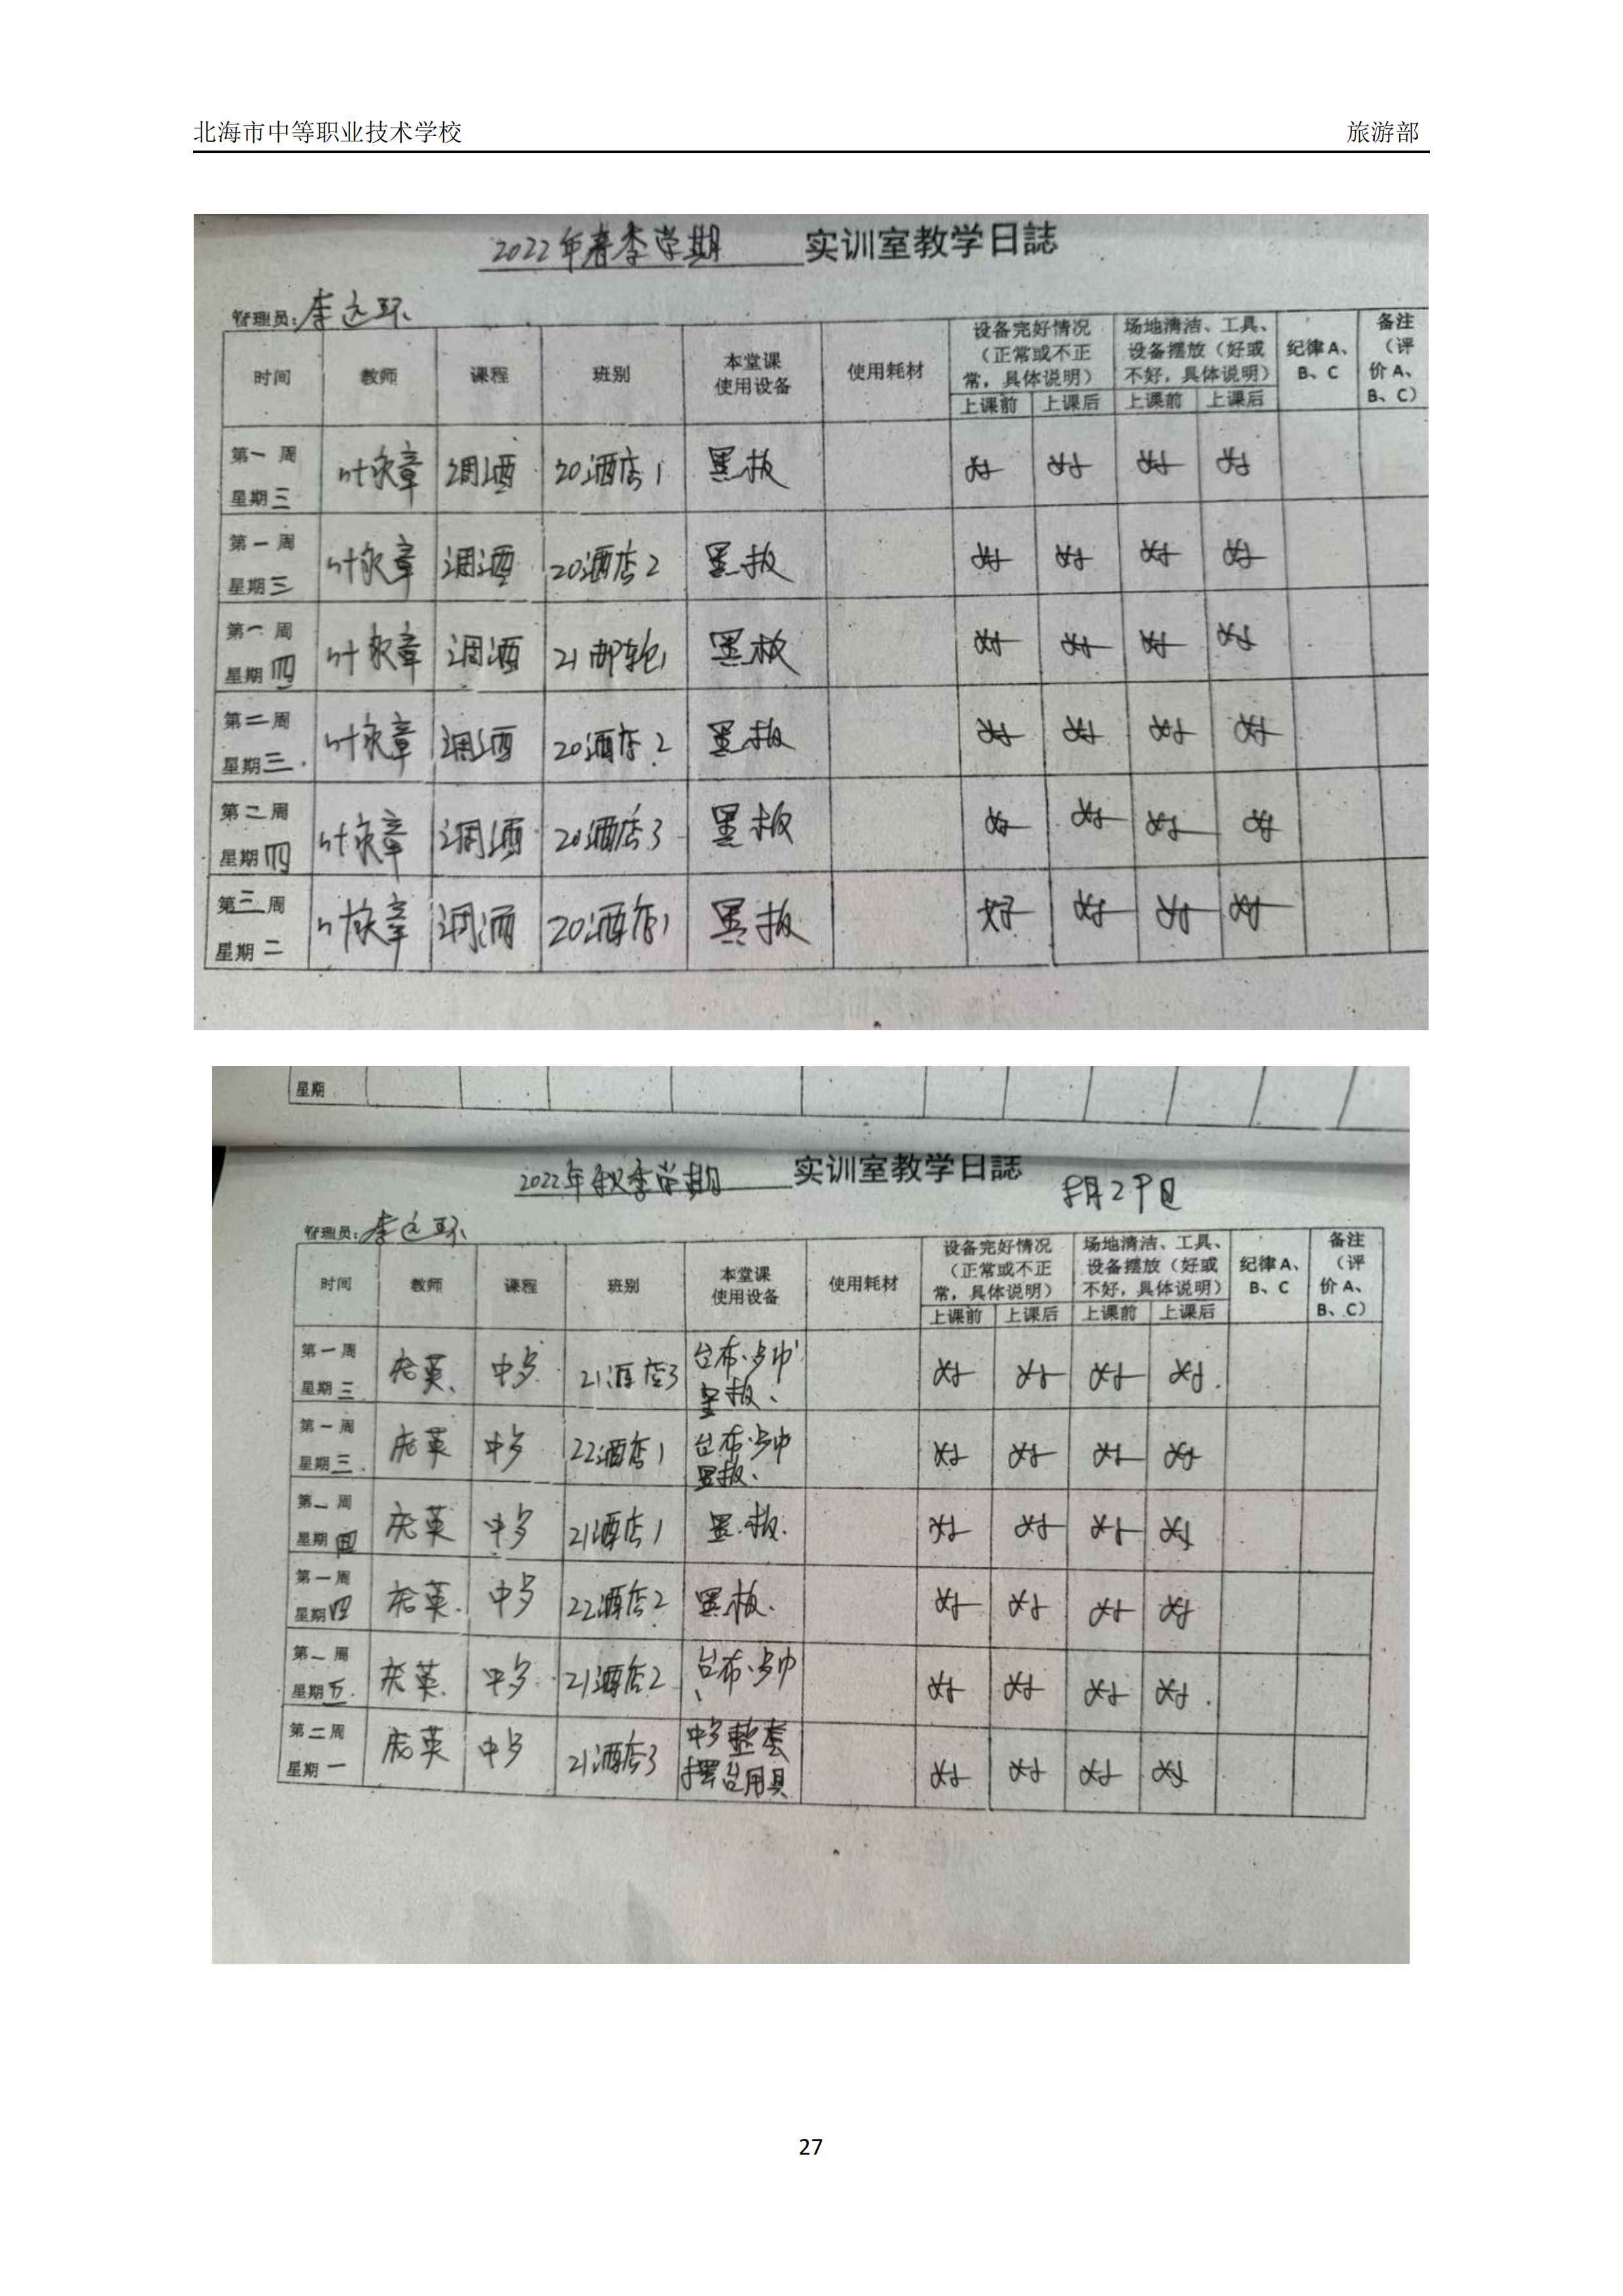 北海市中等职业技术学校 旅游部
2022年春季学期 实训室教学日誌
管理员:李远环
时间 教师 课程 班别 本堂课使用设备 使用耗材 设备完好情况（正常或不正常，具体说明） 场地清洁、工具、设备摆放（好或不好，具体说明） 纪律A、B、C 备注（评价A、B、C）
上课前 上课后 上课前 上课后
第一周 星期三 叶永章 调酒 20酒店1 黑板 好 好 好 好
第一周 星期三 叶永章 调酒 20酒店2 黑板 好 好 好 好
第一周 星期四 叶永章 调酒 21邮轮1 黑板 好 好 好 好
第二周 星期三 叶永章 调酒 20酒店2 黑板 好 好 好 好
第二周 星期四 叶永章 调酒 20酒店3 黑板 好 好 好 好
第三周 星期二 叶永章 调酒 20酒店1 黑板 好 好 好 好
星期
2022年秋季学期 实训室教学日誌 8月29日
管理员:李远环
时间 教师 课程 班别 本堂课使用设备 使用耗材 设备完好情况（正常或不正常，具体说明） 场地清洁、工具、设备摆放（好或不好，具体说明） 纪律A、B、C 备注（评价A、B、C）
上课前 上课后 上课前 上课后
第一周 星期三 庞英 中歺 21酒店3 台布、口巾 黑板、 好 好 好 好
第一周 星期三 庞英 中歺 22酒店1 台布、口巾 黑板、 好 好 好 好
第一周 星期四 庞英 中歺 21酒店1 黑板 好 好 好 好
第一周 星期四 庞英 中歺 22酒店2 黑板 好 好 好 好
第一周 星期五 庞英 中歺 21酒店2 台布、口巾 好 好 好 好
第二周 星期一 庞英 中歺 21酒店3 中歺整套摆台用具 好 好 好 好
27